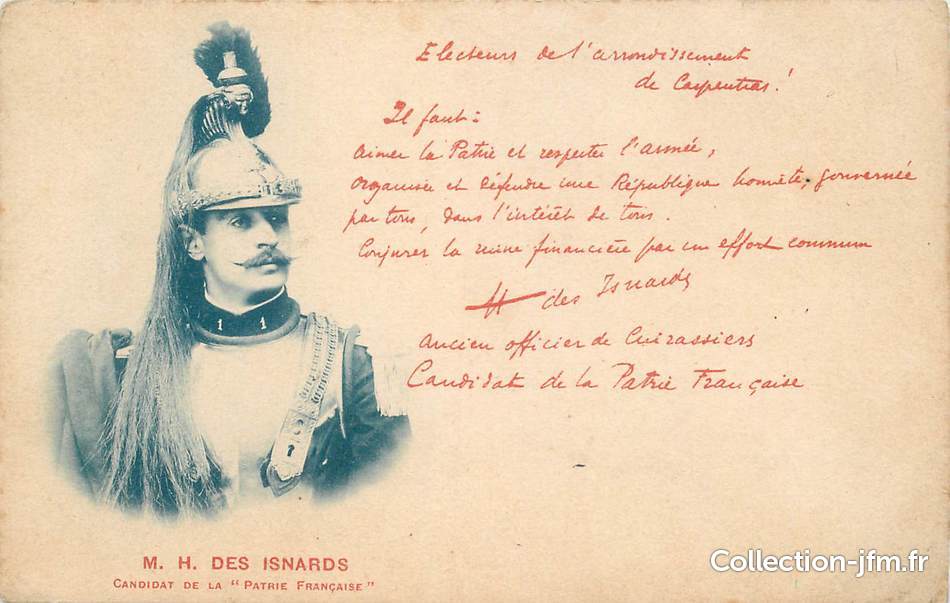 Electeurs de l'arrondissement
de Carpentras !
Il faut :
Aimer la Patrie et respecter l'armée,
Organiser et défendre une République honnête, gouvernée
par tous, dans l'intérêt de tous.
Conjurer la ruine financière par un effort commun
H des Isnards
Ancien officier de Cuirassiers
Candidat de la Patrie Française
1 1
M. H. DES ISNARDS
CANDIDAT DE LA "PATRIE FRANÇAISE"
Collection-jfm.fr